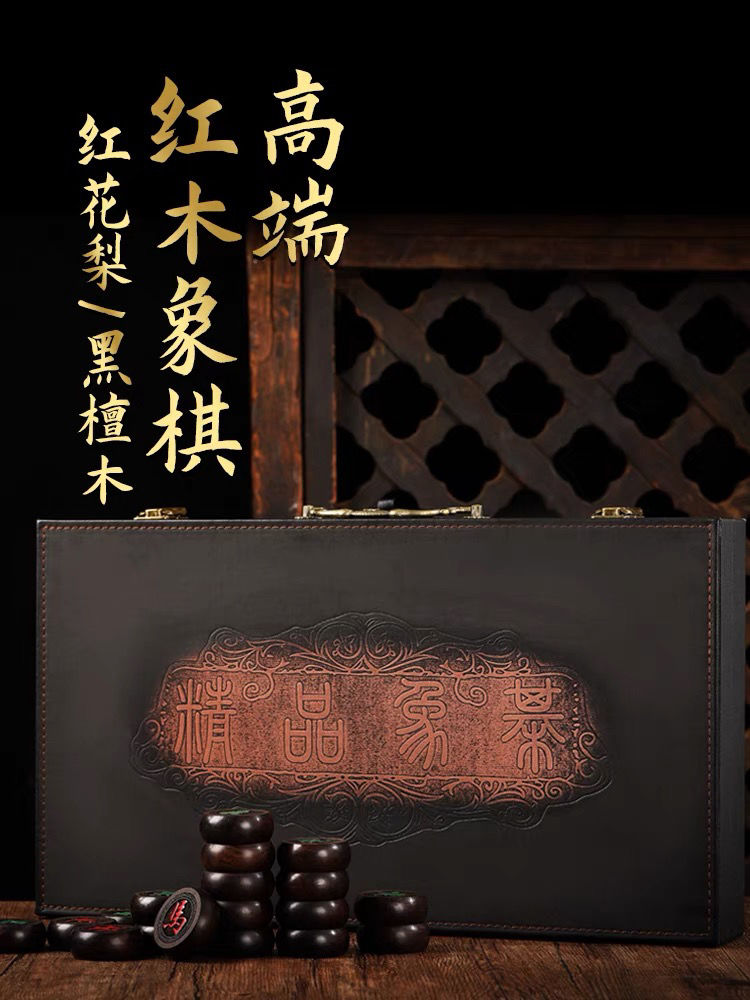 高端
红木象棋
红花梨/黑檀木
精品象棊
馬